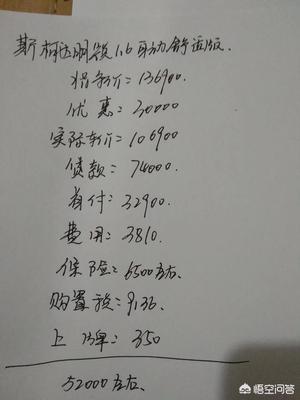 斯柯达明锐1.6自动舒适版.
指导价=136900.
优惠=30000
实际车价=106900
贷款=74000.
首付=32900.
费用=3810.
保险=6500左右.
购置税=9136.
上牌=350
52000左右.
悟空问答